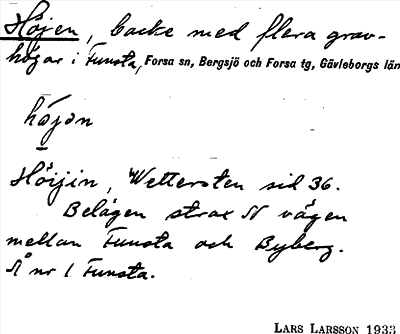 Höjen, backe med flera grav-
högar i Funsta, Forsa sn, Bergsjö och Forsa tg, Gävleborgs län
hö́jən
Höijin, Wettersten sid 36.
Belägen strax N vägen
mellan Funsta och Byberg.
Å nr 1 Funsta.
LARS LARSSON 1933